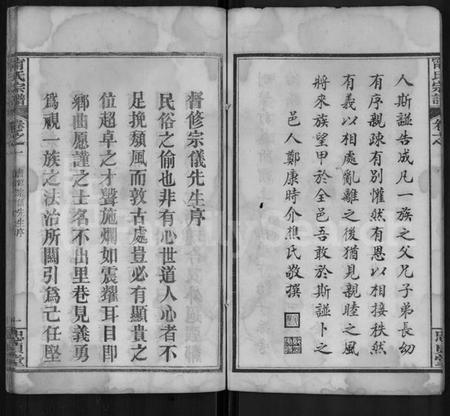 人斯譜告成凡一族之父兄子弟長幼
有序親疎有別懽然有恩以相接秩然
有義以相處亂離之後猶見親睦之風
將來族望甲於全邑吾敢於斯譜卜之
邑人鄭康時介樵氏敬撰
甯氏宗譜
卷之一
督修宗儀先生序
民俗之偷也非有心世道人心者不
足挽頹風而敦古處豈必有顯貴之
位超卓之才聲施爛如震耀耳目即
鄉曲愿謹之士名不出里巷見義勇
為視一族之法治所關引為己任堅
甯氏宗譜
卷之一
儀先生序
一